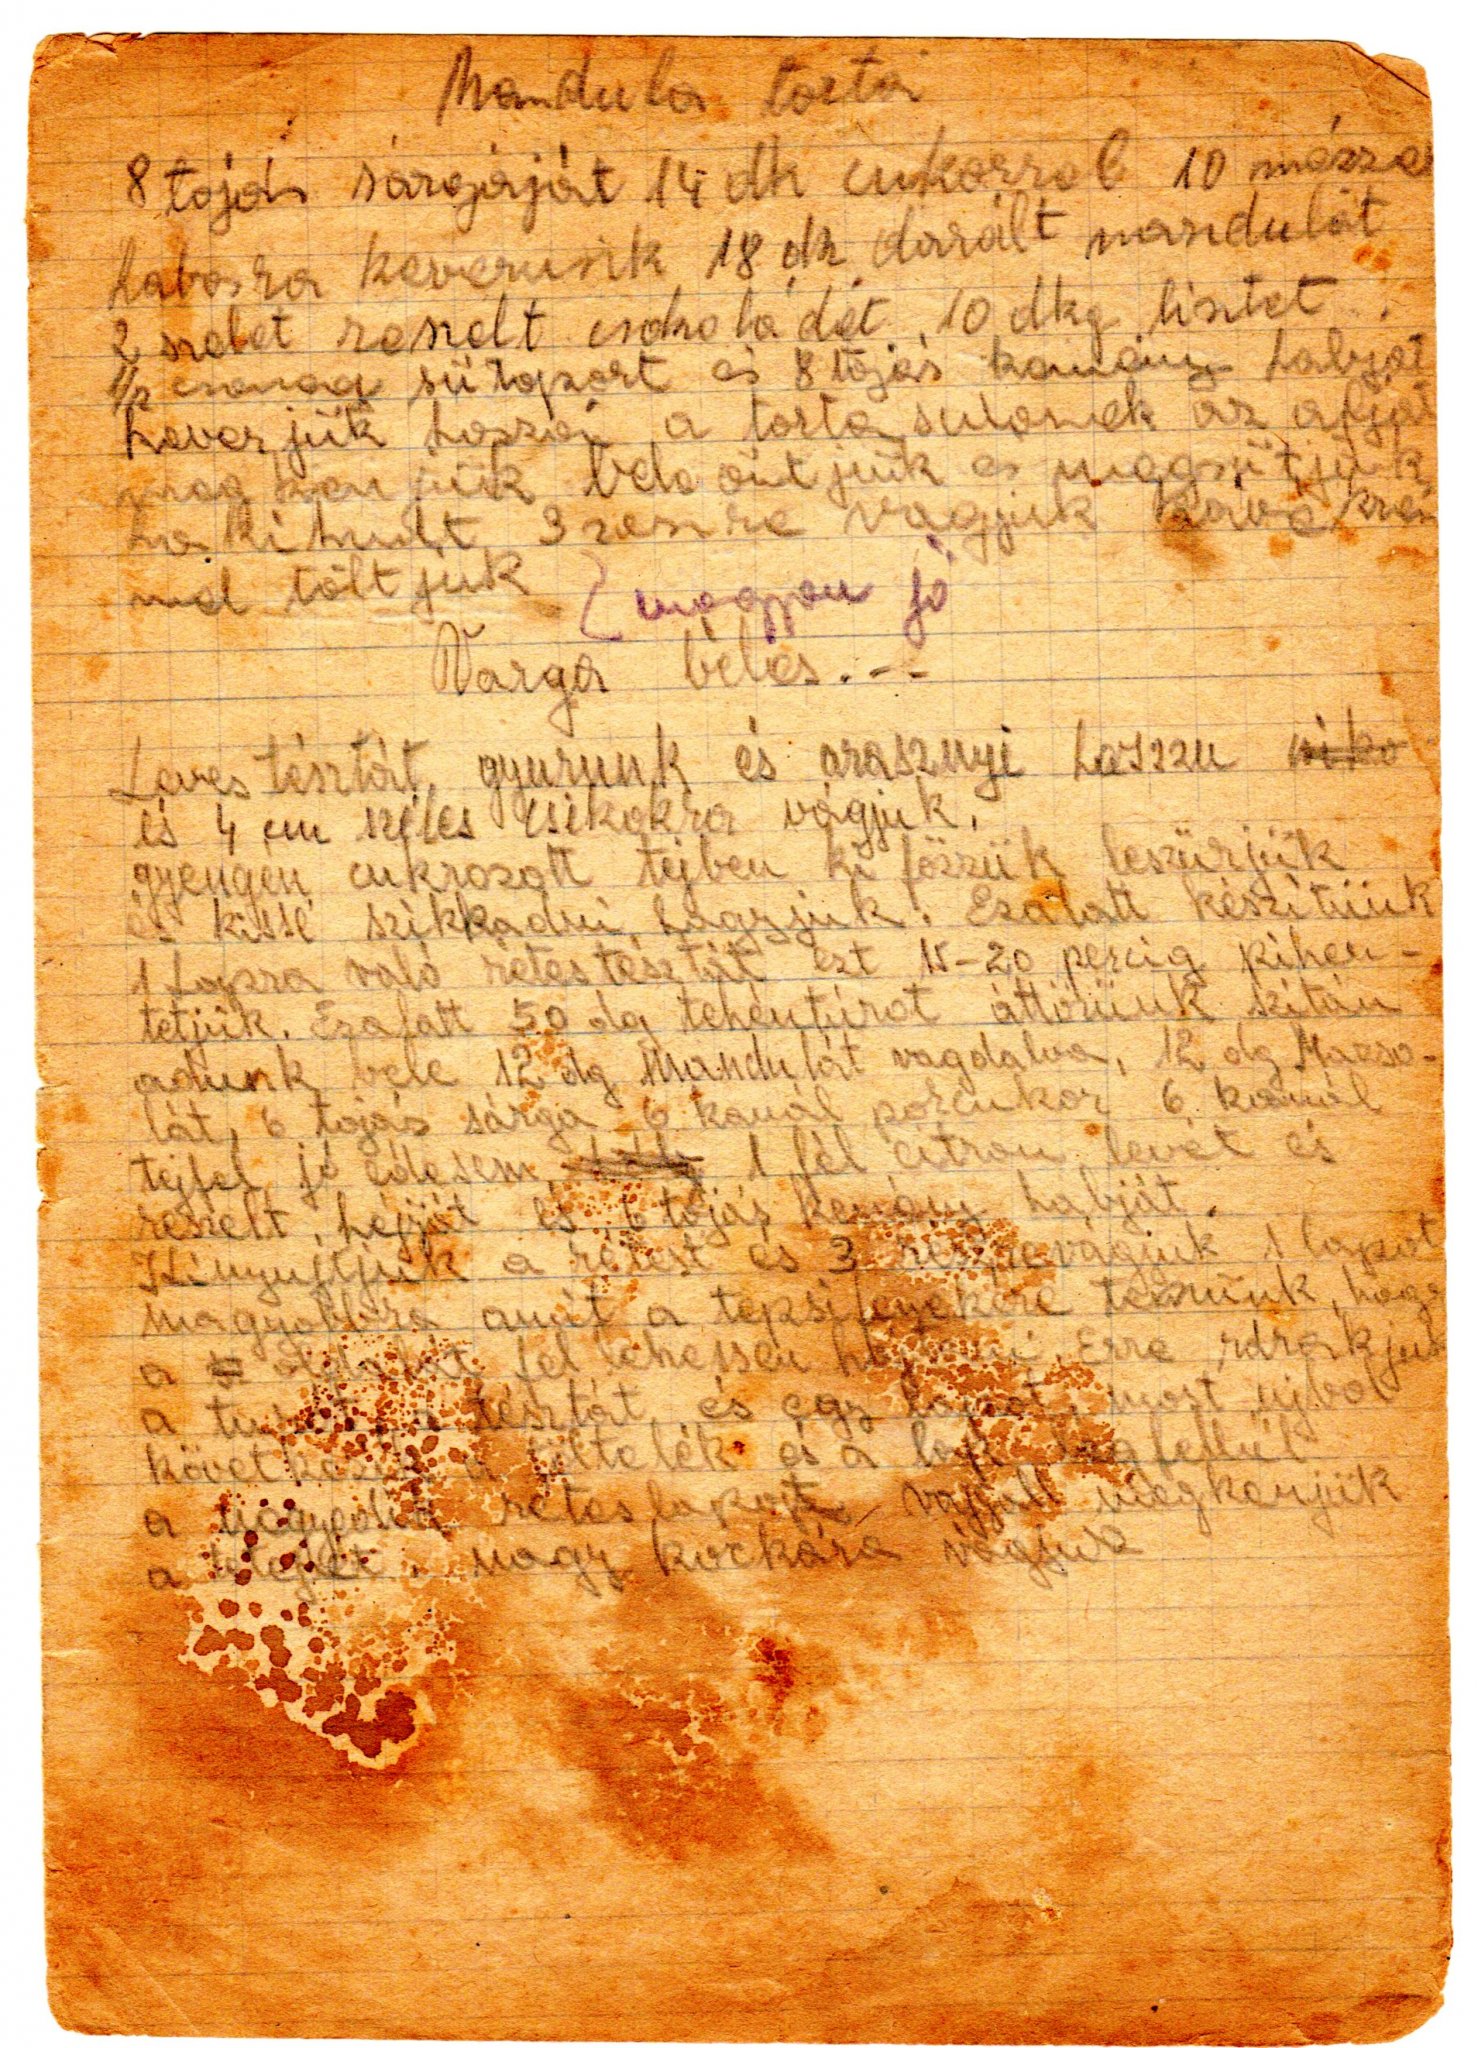 Mandula torta
8 tojás sárgáját 14 dk cukorral 10
habosra keverünk 18 dk darált mandulát
2 szelet reszelt csokoládét 10 dkg lisztet
1/2 csomag sütöport és 8 tojás kemény habját
keverjük hozzá a torta sütönek az alját
meg kenjük bele öntjük es megsütjük
ha kihult 3 reszre vágjuk kávé krém
mel töltjük
nagyon jó
Varga béles.--
Leves tésztát gyurunk és arasznyi hoszzu
és 4 cm széles csikokra vágjuk.
gyengén cukrozott tejben ki fözzük leszürjük
és kissé szikkadni hagyjuk. Ezalatt készitünk
1 lapra való rétestésztát ezt 15-20 percig pihen-
tetjük. Ezalatt 50 dg tehéntúrot áttörünk szitán
adunk bele 12 dg Mandulát vagdalva, 12 dg Mazso-
lát, 6 tojás sárga 6 kanál porcukor 6 kanál
tejfel jó édesem, 1 fél citrom levét és
reszelt héjját és 6 tojás kemény habját.
Kinyujtjuk a rétest és 3 részre vágjuk 1 lapot
nagyobbra amit a tepsi fenekére teszünk, hogy
a oldalát fel lehessen hajtani Erre rárakjuk
a tésztát és egy lapot, most ujbol
következik a töltelék és a lap legfellül
a negyedik reteslapot vajjall megkenjük
a tetejét. nagy kockára vágjuk